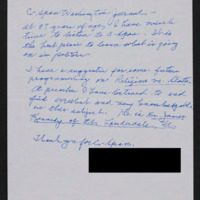 C-Span Washington journal -
at 87 years of age, I have much
time to listen to C-Span. It is
the best place to learn what is going
on in politics.
I have a suggestion for some future
programming on Religion vs. State.
A preacher I have listened to and
find excellent and very knowledgeable
on this subject. He is Dr. James
Kennedy of Ft. Lauderdale, Fl.
Thank you for C-Span.